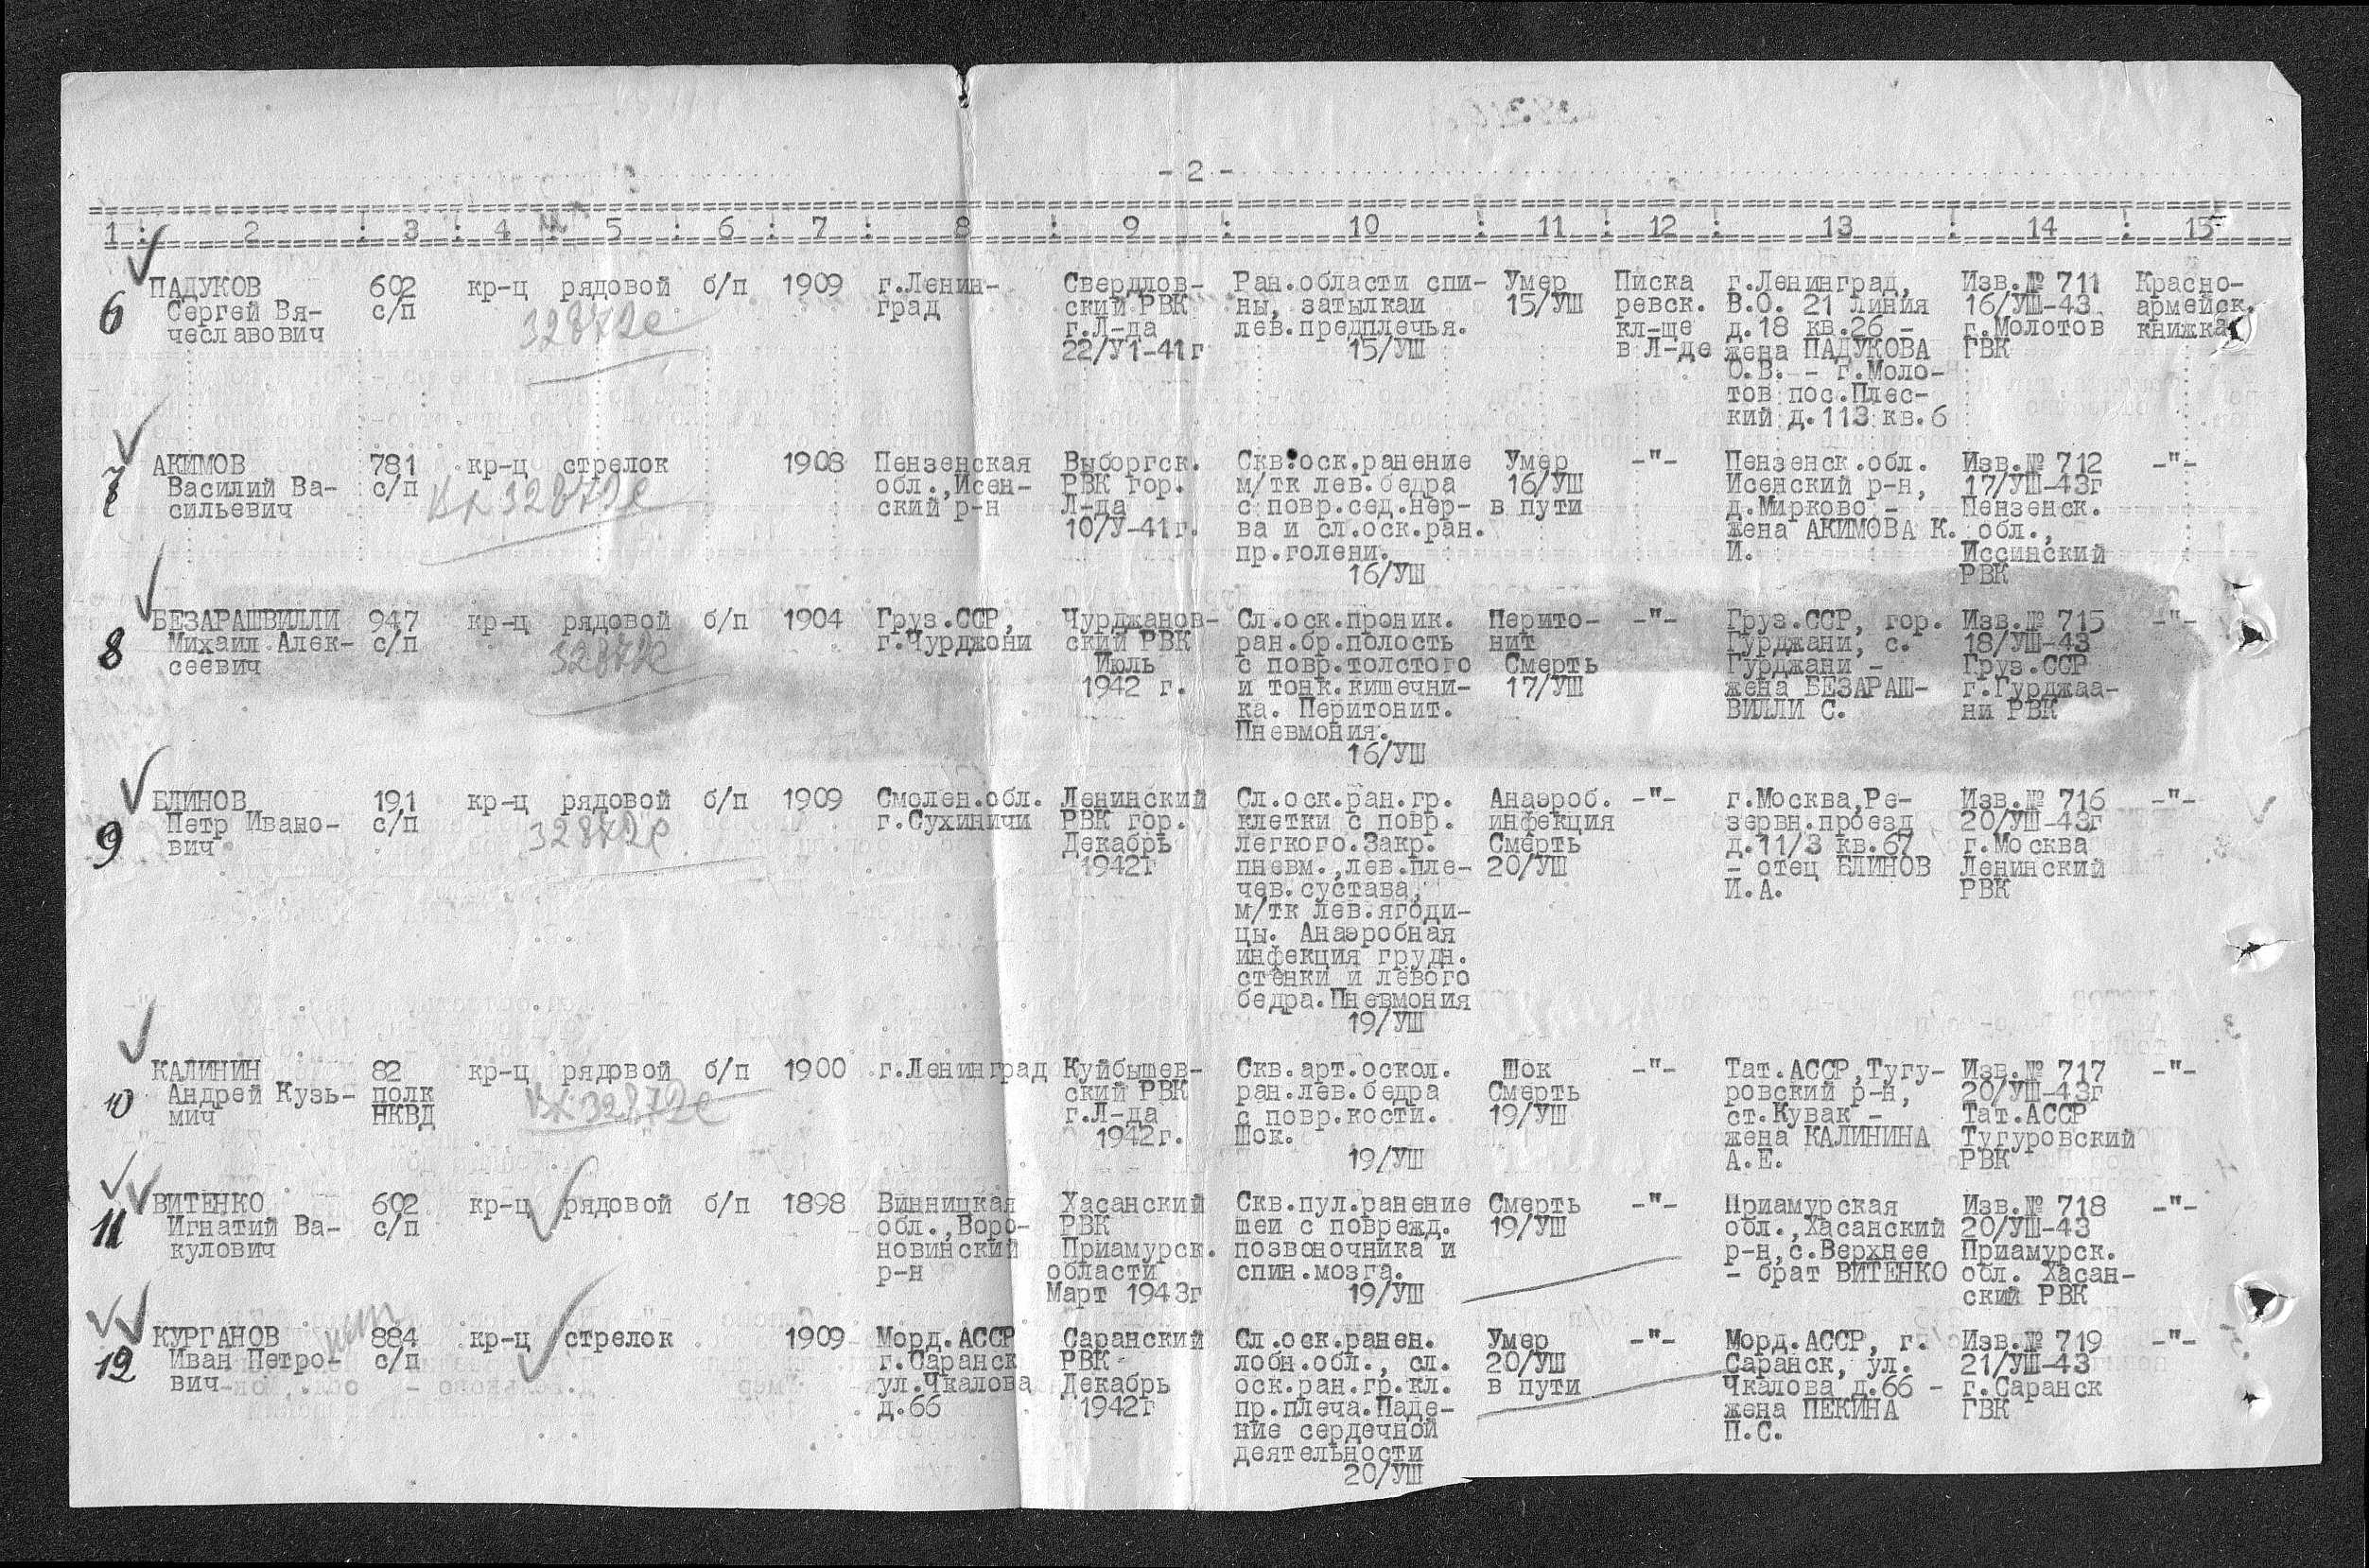 - 2 -
1 : 2 : 3 : 4 : 5 : 6 : 7 : 8 : 9 : 10 : 11 : 12 : 13 : 14 : 15
ПАДУКОВ 602 кр-ц рядовой б/п 1909 г.Ленин- Свердлов- Ран.области спи- Умер Писка г.Ленинград, Изв.№ 711 Красно-
6 Сергей Вя- с/п град ский РВК ны, затылкаи 15/УШ ревск. В.О. 21 линия 16/УШ-43 армейск.
чеславович 32872с г.Л-да лев.предплечья. кл-ще д.18 кв.26 - г.Молотов книжка
22/У1-41г 15/УШ в Л-де жена ПАДУКОВА РВК
О.В. - г.Моло-
тов пос.Плес-
кий д.113 кв.6
7 АКИМОВ 781 кр-ц стрелок 1908 Пензенская Выборгск. Скв.оск.ранение Умер -"- Пензенск.обл. Изв.№ 712 -"-
Василий Ва- с/п 32872с обл.,Исен- РВК гор. м/тк лев.бедра 16/УШ Исенский р-н, 17/УШ-43г
сильевич ский р-н Л-да с повр.сед.нер- в пути д.Мирково - Пензенск.
10/У-41г. ва и сл.оск.ран. жена АКИМОВА К. обл.,
пр.голени. И. Иссинский
16/УШ РВК
БЕЗАРАШВИЛЛИ 947 кр-ц рядовой б/п 1904 Груз.ССР, Чурджанов- Сл.оск.проник. Перито- -"- Груз.ССР, гор. Изв.№ 715 -"-
8 Михаил Алек- с/п 32872с г.Чурджони ский РВК ран.бр.полость нит Гурджани, с. 18/УШ-43
сеевич Июль с повр.толстого Смерть Гурджани - Груз.ССР
1942 г. и тонк.кишечни- 17/УШ жена БЕЗАРАШ- г.Гурджаа-
ка. Перитонит. ВИЛЛИ С. ни РВК
Пневмония.
16/УШ
БЛИНОВ 191 кр-ц рядовой б/п 1909 Смолен.обл. Ленинский Сл.оск.ран.гр. Анаэроб. -"- г.Москва,Ре- Изв.№ 716 -"-
9 Петр Ивано- с/п 32872с г.Сухиничи РВК гор. клетки с повр. инфекция зервн.проезд 20/УШ-43г
вич Декабрь легкого.Закр. Смерть д.11/3 кв.67 г.Москва
1942г пневм.,лев.пле- 20/УШ - отец БЛИНОВ Ленинский
чев.сустава, И.А. РВК
м/тк лев.ягоди-
цы. Анаэробная
инфекция грудн.
стенки и левого
бедра.Пневмония
19/УШ
КАЛИНИН 82 кр-ц рядовой б/п 1900 г.Ленинград Куйбышев- Скв.арт.оскол. Шок -"- Тат.АССР,Тугу- Изв.№ 717 -"-
10 Андрей Кузь- полк 32872с ский РВК ран.лев.бедра Смерть ровский р-н, 20/УШ-43г
мич НКВД г.Л-да с повр.кости. 19/УШ ст.Кувак - Тат.АССР
1942г. Шок. жена КАЛИНИНА Тугуровский
19/УШ А.Е. РВК
ВИТЕНКО 602 кр-ц рядовой б/п 1898 Винницкая Хасанский Скв.пул.ранение Смерть -"- Приамурская Изв.№ 718 -"-
11 Игнатий Ва- с/п обл.,Воро- РВК шеи с поврежд. 19/УШ обл.,Хасанский 20/УШ-43
кулович новинский Приамурск. позвоночника и р-н,с.Верхнее Приамурск.
р-н области спин.мозга. - брат ВИТЕНКО обл. Хасан-
Март 1943г 19/УШ ский РВК
нет
КУРГАНОВ 884 кр-ц стрелок 1909 Морд.АССР Саранский Сл.оск.ранен. Умер -"- Морд.АССР, г. Изв.№ 719 -"-
12 Иван Петро- с/п г.Саранск РВК лобн.обл., сл. 20/УШ Саранск, ул. 21/УШ-43
вич ул.Чкалова Декабрь оск.ран.гр.кл. в пути Чкалова д.66 - г.Саранск
д.66 1942г пр.плеча.Паде- жена ПЕКИНА ГВК
ние сердечной П.С.
деятельности
20/УШ